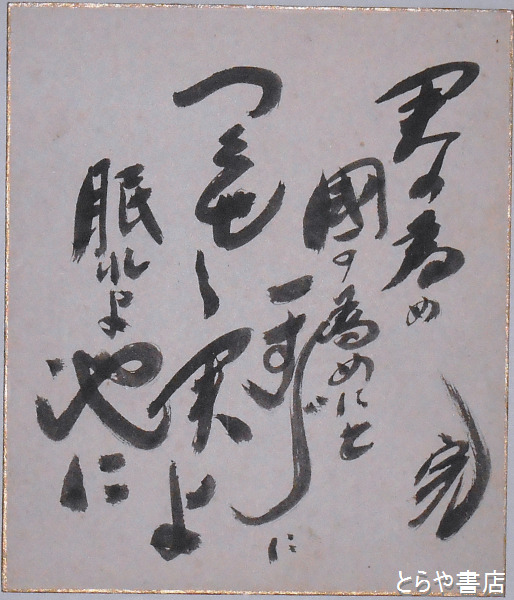 君の為め
國の為めにと
一すぢに
つくせし君よ
眠れよ
に
完
とらや書店